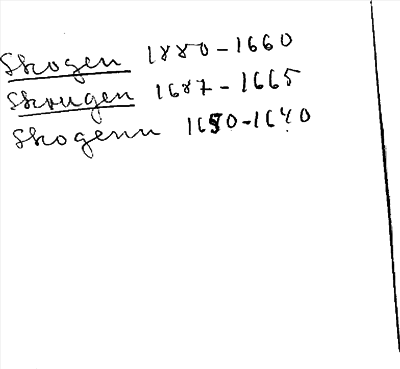 Skogen 1880-1660
Skrugen 1687-1665
Skogenn 1650-1640